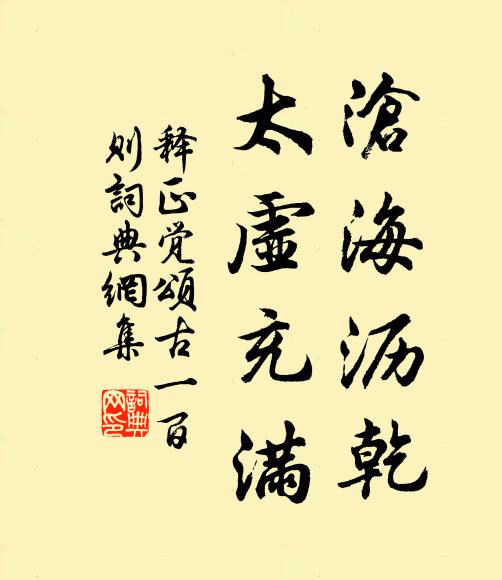 滄海沥乾
太虛充滿
释正觉頌古一百
则詞典網集
詞典
网印